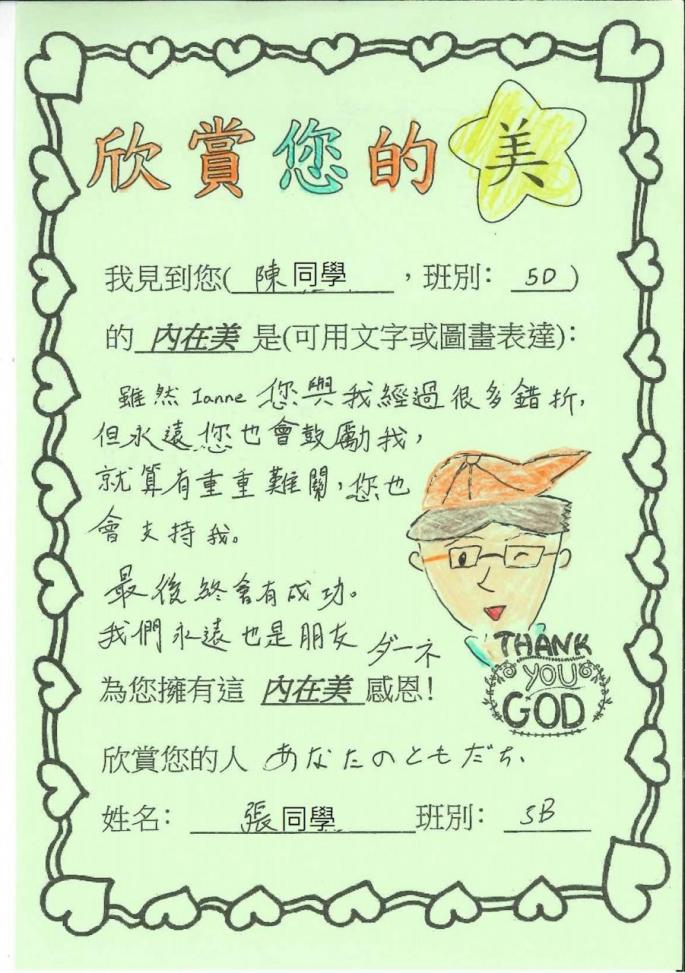 欣賞您的美
我見到您(陳同學，班別：5D)
的 內在美 是(可用文字或圖畫表達)：
雖然 Ianne 您與我經過很多錯折，
但永遠您也會鼓勵我，
就算有重重難關，您也
會支持我。
最後終會有成功。
我們永遠也是朋友 ダーネ
為您擁有這 內在美 感恩！
THANK
YOU
GOD
欣賞您的人 あなたのともだち、
姓名： 張同學 班別： 5B